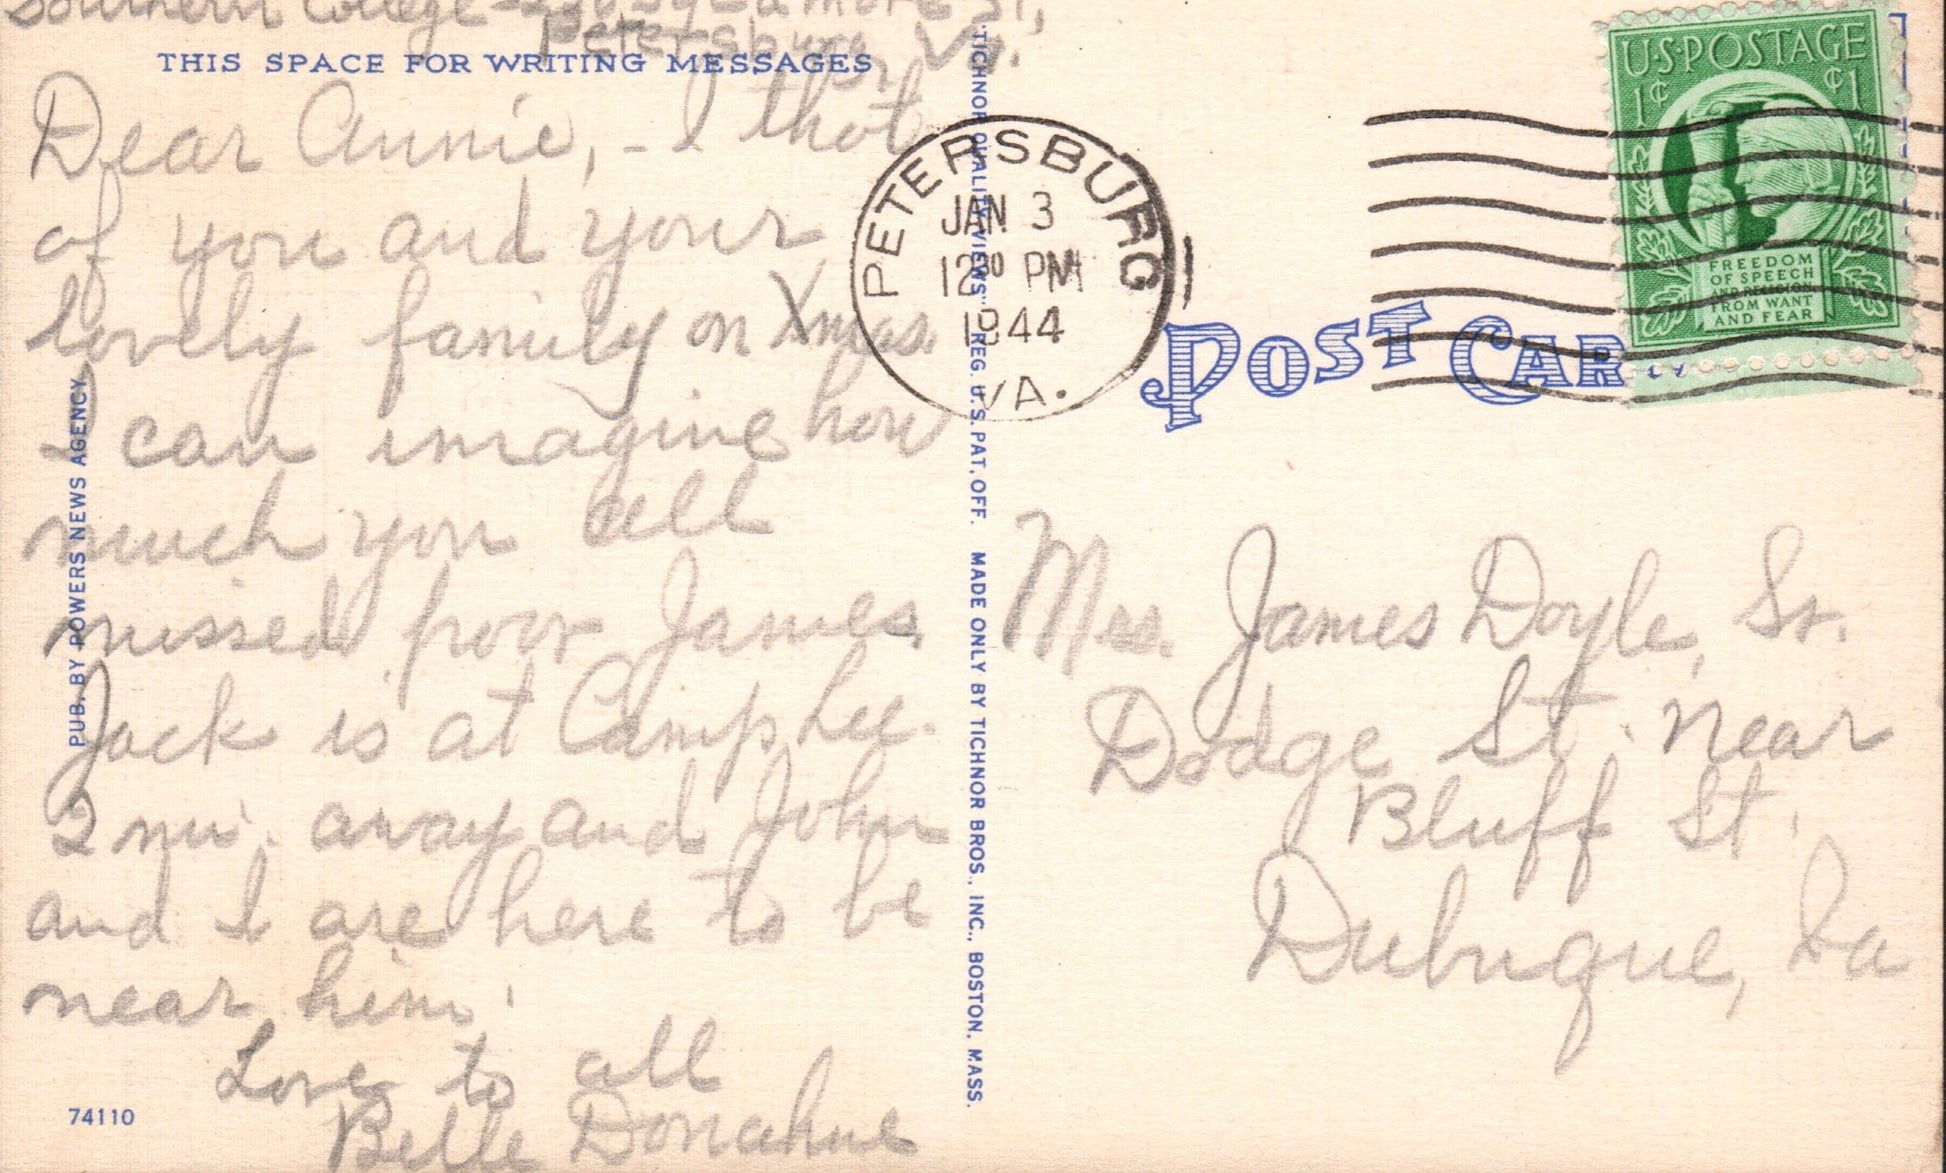 Southern College - 230 Sycamore St,
Petersburg, Va.
THIS SPACE FOR WRITING MESSAGES
Dear Annie, - I thot
of you and your
lovely family on Xmas.
I can imagine how
much you all
missed poor James.
Jack is at Camp Lee.
2 mi. away and John
and I are here to be
near him.
Love to all
Belle Donahue
74110
PUB. BY POWERS NEWS AGENCY
"TICHNOR QUALITY VIEWS" REG. U.S. PAT. OFF. MADE ONLY BY TICHNOR BROS., INC., BOSTON, MASS.
PETERSBURG
JAN 3
12 30 PM
1944
VA.
U.S. POSTAGE
1¢ ¢1
FREEDOM
OF SPEECH
AND RELIGION,
FROM WANT
AND FEAR
POST CAR
Mrs. James Doyle, Sr.
Dodge St. near
Bluff St.
Dubuque, Ia